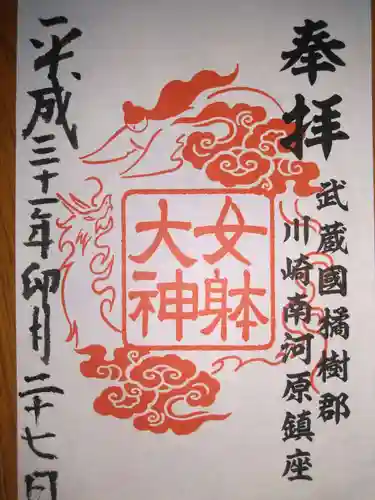 奉拝
武蔵國橘樹郡
川崎南河原鎮座
女躰
大神
平成三十一年卯月二十七日